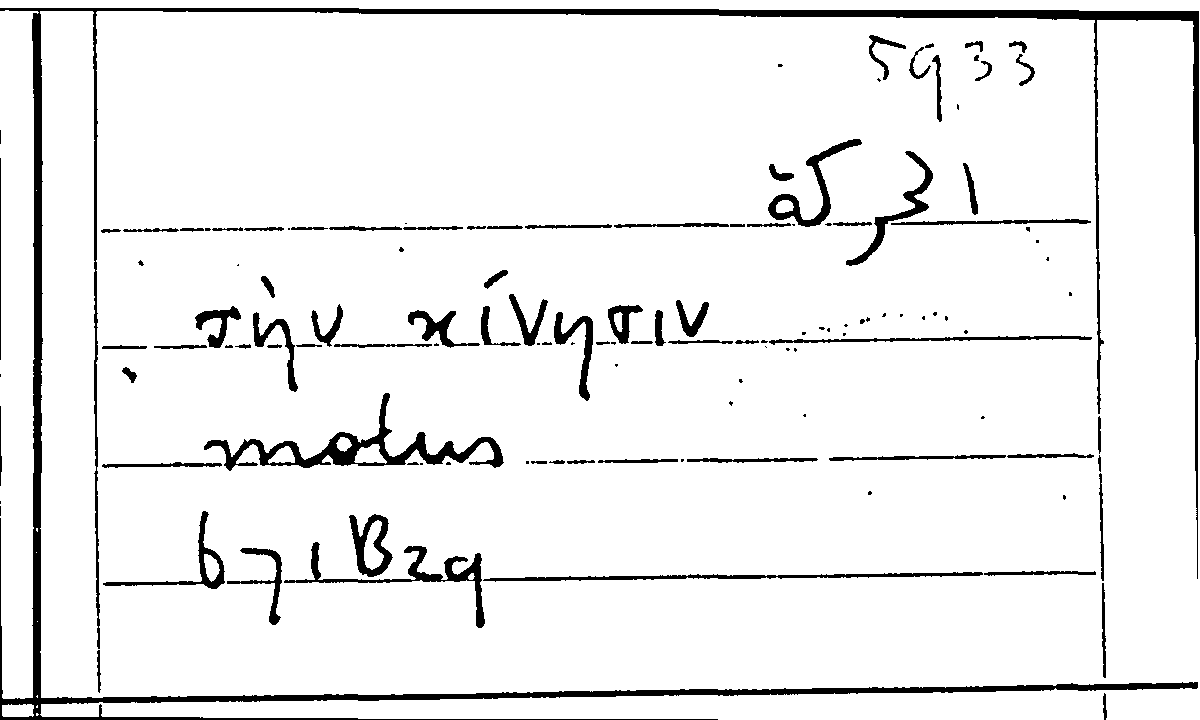 5933
τὴν κίνησιν
motus
671B29